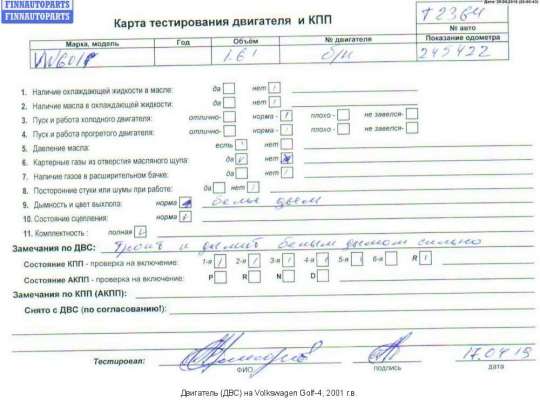 FINNAUTOPARTS
FINNAUTOPARTS
Карта тестирования двигателя и КПП
T2364
№ авто
Марка, модель Год Объём № двигателя Показание одометра
1.6i б/н 245422
1. Наличие охлаждающей жидкости в масле: да нет
2. Наличие масла в охлаждающей жидкости: да нет
3. Пуск и работа холодного двигателя: отлично- норма - плохо - не завелся-
4. Пуск и работа прогретого двигателя: отлично- норма - плохо - не завелся-
5. Давление масла: есть нет
6. Картерные газы из отверстия масляного щупа: да нет
7. Наличие газов в расширительном бачке: да нет
8. Посторонние стуки или шумы при работе: да нет
9. Дымность и цвет выхлопа: норма белый дым
10. Состояние сцепления: норма
11. Комплектность : полная
Замечания по ДВС: Троит и дымит белым дымом сильно
Состояние КПП - проверка на включение: 1-я 2-я 3-я 4-я 5-я 6-я R
Состояние АКПП - проверка на включение: P R N D
Замечания по КПП (АКПП):
Снято с ДВС (по согласованию!):
Тестировал: 17.04.15
ФИО подпись дата
Двигатель (ДВС) на Volkswagen Golf-4, 2001 г.в.